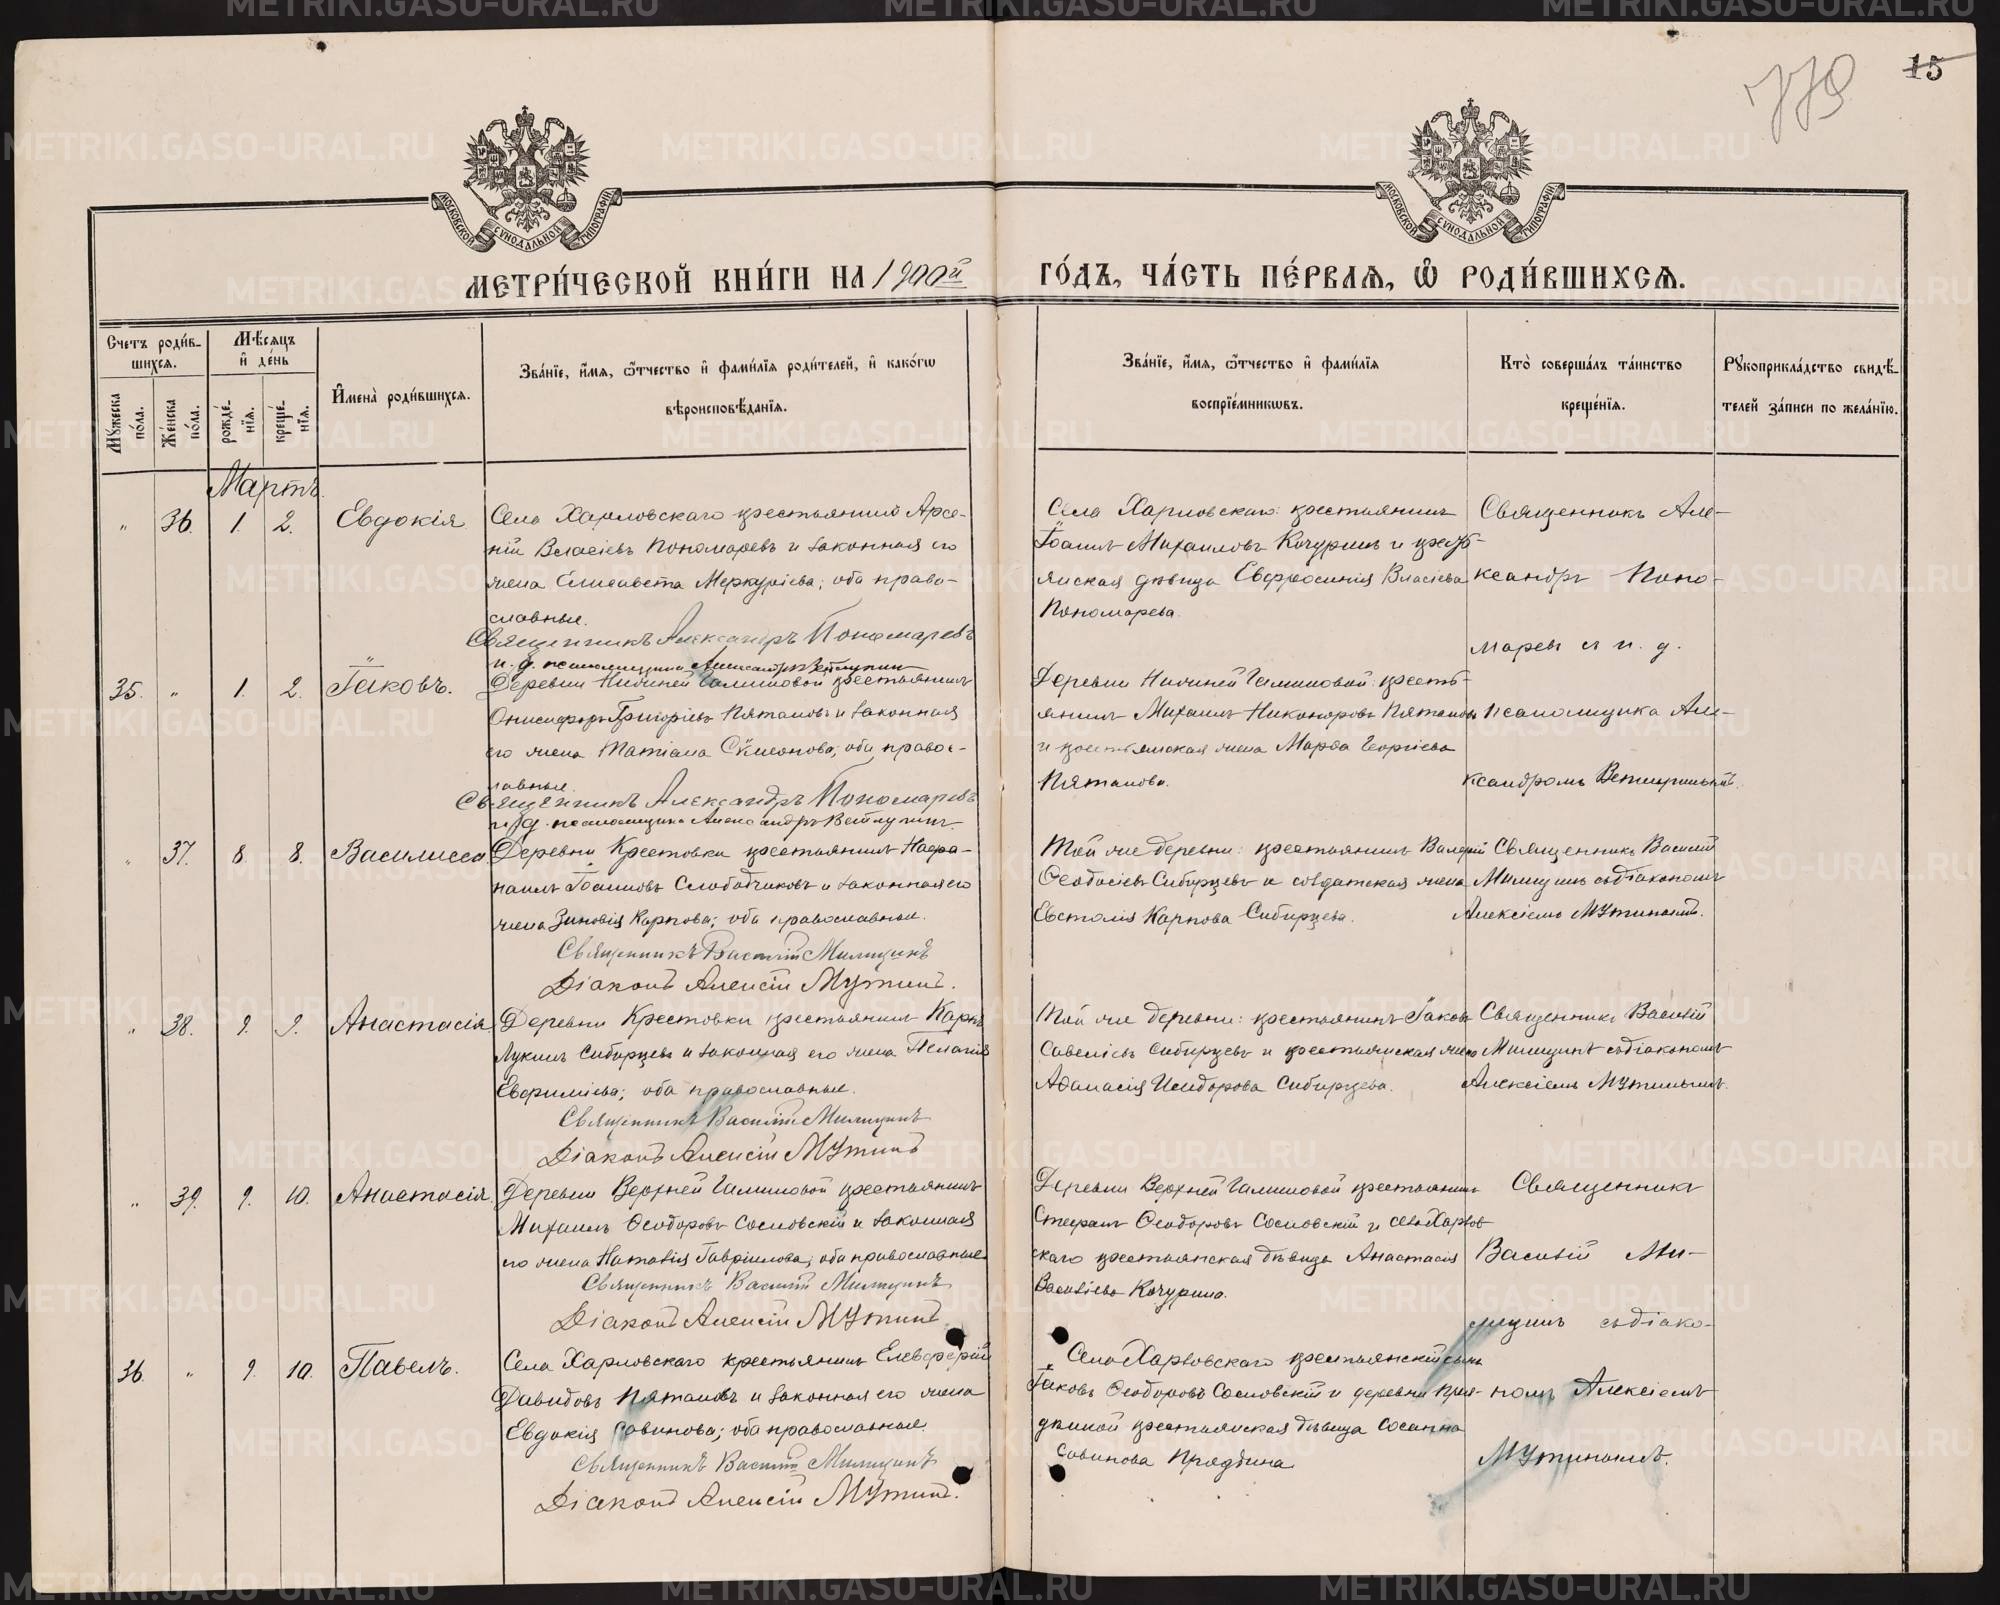 15
779
МОСКОВСКОЙ СѴНОДАЛЬНОЙ ТИПОГРАФІИ
МОСКОВСКОЙ СѴНОДАЛЬНОЙ ТИПОГРАФІИ
МЕТРИ́ЧЕСКОЙ КНИ́ГИ НА 1900й
ГО́ДЪ, ЧА́СТЬ ПЕ́РВАЯ, Ѽ РОДИ́ВШИХСЯ.
Счетъ роди́в-
шихся.
Мꙋжеска
по́ла.
Же́нска
по́ла.
Мѣ́сяцъ
и҆ де́нь
рожде́-
нїя.
креще́-
нїя.
И҆мена̀ роди́вшихся.
Зва́нїе, и҆́мя, ѻ҆́тчество и҆ фами́лїя роди́телей, и҆ како́гѡ
вѣроисповѣ́данїя.
Зва́нїе, и҆́мя, ѻ҆́тчество и҆ фами́лїя
воспрїе́мникѡвъ.
Кто̀ соверша́лъ та́инство
креще́нїя.
Рꙋкоприкла́дство свидѣ́-
телей за́писи по жела́нїю.
Мартъ.
" 36. 1. 2. Евдокія
Села Харловскаго крестьянинъ Арсе-
ній Власіевъ Пономаревъ и законная его
жена Елисавета Меркуріева; оба право-
славные.
Священникъ Александръ Пономаревъ
и. д. псаломщика Александръ Ветлугинъ
Села Харловскаго: крестьянинъ
Іоаннъ Михаиловъ Качуринъ и крест-
янская дѣвица Евфросинія Власіева
Пономарева.
Священникъ Але-
ксандръ Поно-
маревъ и и. д.
35. " 1. 2. Іаковъ.
Деревни Нижней Галишовой крестьянинъ
Онисифоръ Григоріевъ Пятановъ и законная
его жена Татіана Сѵмеонова; оба правос-
лавные.
Священникъ Александръ Пономаревъ
и. д. псаломщика Александръ Ветлугинъ.
Деревни Нижней Галишовой: кресть-
янинъ Михаилъ Никоноровъ Пятановъ
и крестьянская жена Марѳа Георгіева
Пятанова.
псаломщика Але-
ксандромъ
" 37. 8. 8. Василисса
Деревни Крестовки крестьянинъ Наѳа-
наилъ Іоанновъ Слободчиковъ и законная его
жена Зиновія Карпова; оба православные.
Священникъ Василій Милицинъ
Діаконъ Алексій Мутинъ.
Той же деревни: крестьянинъ Валерій
Ѳеодосіевъ Сибирцевъ и солдатская жена
Евстолія Карпова Сибирцева.
Священникъ Василій
Милицинъ съ діакономъ
Алексіемъ Мутинымъ.
" 38. 9. 9. Анастасія
Деревни Крестовки крестьянинъ Карпъ
Лукинъ Сибирцевъ и законная его жена Пелагія
Евфиміева; оба православные.
Священникъ Василій Милицинъ
Діаконъ Алексій Мутинъ
Той же деревни: крестьянинъ Іаковъ
Савеліевъ Сибирцевъ и крестьянская жена
Аѳанасія Исидорова Сибирцева.
Священникъ Василій
Милицинъ съ діакономъ
Алексіемъ Мутинымъ.
" 39. 9. 10. Анастасія
Деревни Верхней Галишовой крестьянинъ
Михаилъ Ѳеодоровъ Сосновскій и законная
его жена Наталія Гавріилова; оба православные.
Священникъ Василій Милицинъ
Діаконъ Алексій Мутинъ.
Деревни Верхней Галишовой крестьянинъ
Стефанъ Ѳеодоровъ Сосновскій и села Харлов-
скаго крестьянская дѣвица Анастасія
Василіева Качурина.
Священникъ
Василій Ми-
лицинъ съ діако-
36. " 9. 10. Павелъ.
Села Харловскаго крестьянинъ Елевферій
Давидовъ Пятановъ и законная его жена
Евдокія Савинова; оба православные.
Священникъ Василій Милицинъ
Діаконъ Алексій Мутинъ.
Села Харловскаго крестьянскій сынъ
Іаковъ Ѳеодоровъ Сосновскій и деревни Пря-
диной крестьянская дѣвица Сосанна
Савинова Прядеина
номъ Алексіемъ
Мутинымъ.
METRIKI.GASO-URAL.RU